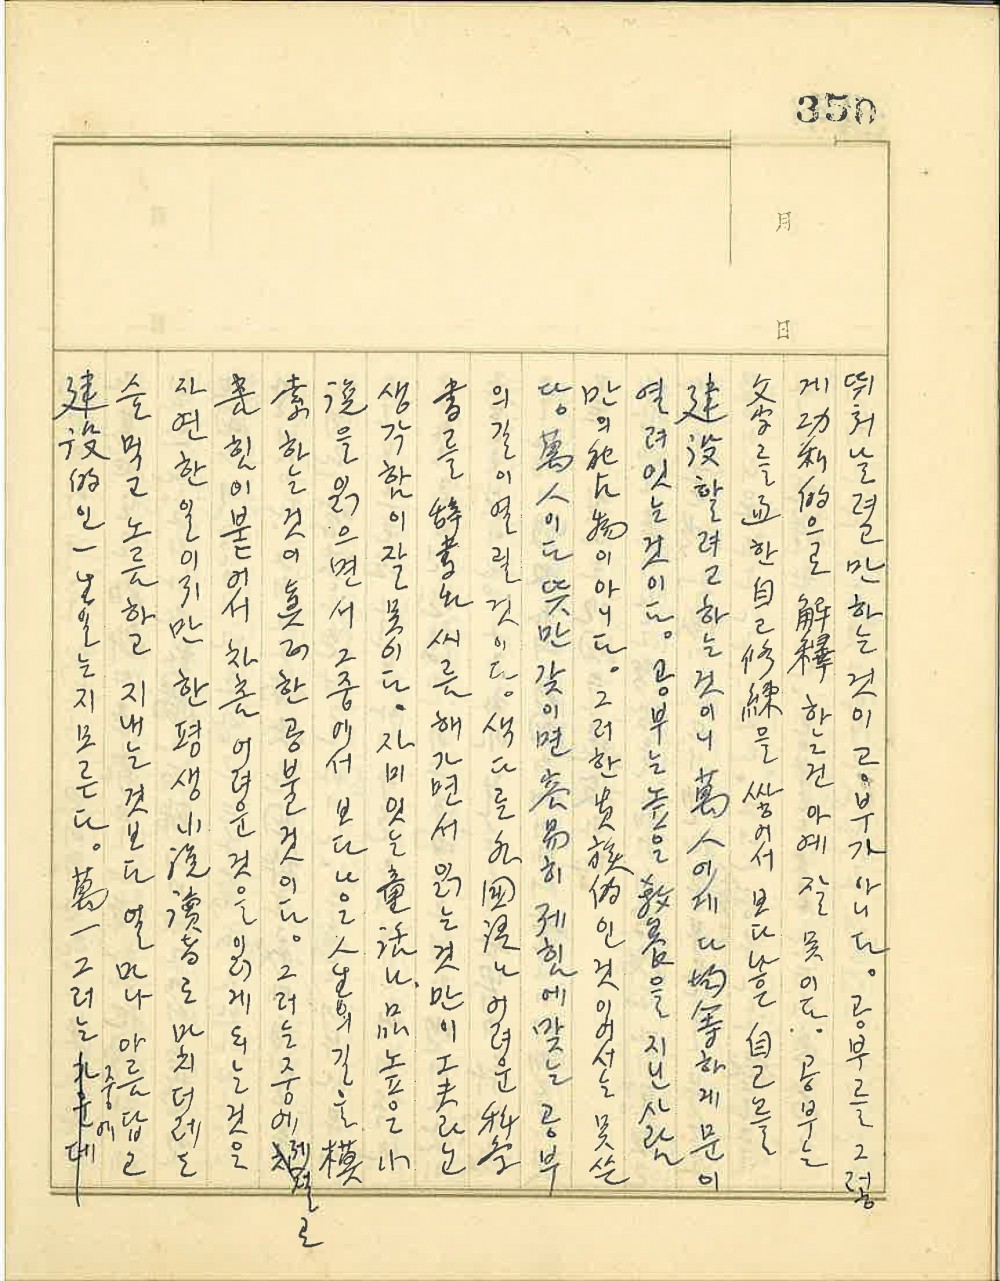 350
月
日
뛰처날렬만하는 것이 공부가 아니다. 공부를 그렇
게 功利的으로 解釋 한건 아예 잘못이다. 공부는
文字를 通한 自己修練을 쌓어서 보다 나은 自己를
建設할려고 하는 것이니 萬人에게 다 均等하게 문이
열려 있는 것이다. 공부는 높은 敎養을 지닌 사람
만의 独占物이 아니다. 그러한 貴族的인 것이어서는 못쓴
다. 萬人이 다 뜻만 갖이면 容易히 제힘에 맞는 공부
의 길이 열릴 것이다. 색다른 外國語나 어려운 科學
書를 辞書와 씨름해가면서 읽는 것만이 工夫라는
생각함이 잘못이다. 자미있는 童話나, 品 높은 小
說을 읽으면서 그중에서 보다 나은 人生의 길을 模
索하는 것이 眞正한 공불 것이다. 그러는 중에 제절로
書 힘이 붙어서 차츰 어려운 것을 읽게 되는 것은
자연한 일이지만 한평생 小說讀者로 마치더래도
술먹고 노름하고 지내는 것보다 얼마나 아름답고
建設的인 一生일는지 모른다. 萬一 그러는 중에